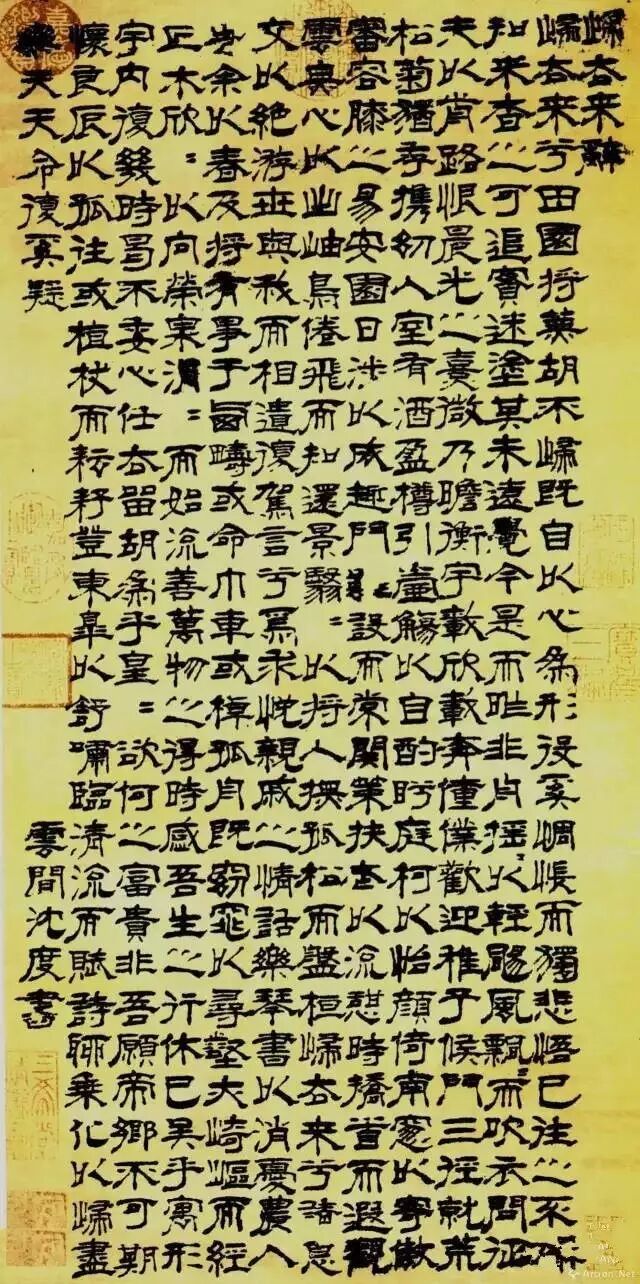 歸去来辭
歸去来兮田園将蕪胡不歸既自以心為形役奚惆悵而獨悲悟已往之不諫
知来者之可追實迷塗其未遠覺今是而昨非舟摇々以輕颺風飄々而吹衣問征
夫以前路恨晨光之熹微乃瞻衡宇載欣載奔僮僕歡迎稚子候門三徑就荒
松菊猶存携幼入室有酒盈樽引壺觴以自酌眄庭柯以怡顏倚南窓以寄傲
審容膝之易安園日涉以成趣門雖設而常関策扶老以流憩時矯首而遐觀
雲無心以出岫鳥倦飛而知還景翳々以将入撫孤松而盤桓歸去来兮請息
交以絶游世與我而相遺復駕言兮焉求悅親戚之情話樂琴書以消憂農人
告余以春及将有事于西疇或命巾車或棹孤舟既窈窕以尋壑亦崎嶇而經
丘木欣々以向榮泉涓々而始流善萬物之得時感吾生之行休已矣乎寓形
宇内復幾時曷不委心任去留胡為乎皇々欲何之富貴非吾願帝鄉不可期
懷良辰以孤往或植杖而耘耔登東皋以舒嘯臨清流而賦詩聊乗化以歸盡
樂夫天命復奚疑
雲間沈度書
Artron.Net